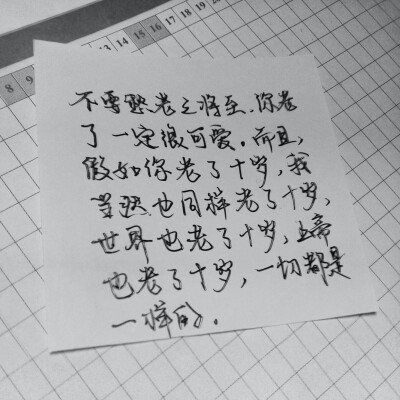 8 9 10 11 12 13 14 15 16 17
不要愁老之将至,你老
了一定很可爱。而且,
假如你老了十岁,我
当然也同样老了十岁,
世界也老了十岁,上帝
也老了十岁,一切都是
一样的。